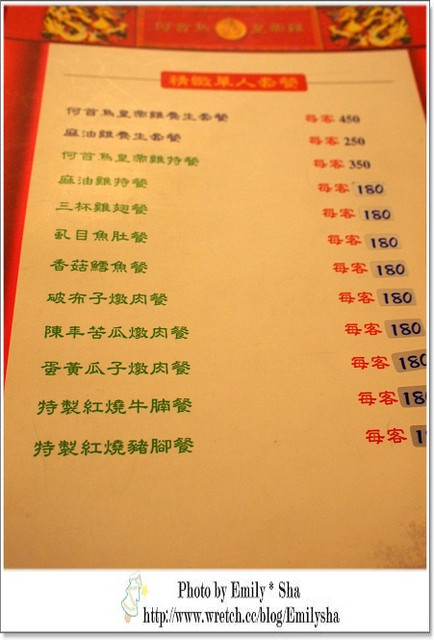 何首烏 皇帝雞
精緻單人套餐
何首烏皇帝雞養生套餐 每客 450
麻油雞養生套餐 每客 250
何首烏皇帝雞特餐 每客 350
麻油雞特餐 每客 180
三杯雞翅餐 每客 180
虱目魚肚餐 每客 180
香菇鱈魚餐 每客 180
破布子燉肉餐 每客 180
陳年苦瓜燉肉餐 每客 180
蛋黃瓜子燉肉餐 每客 180
特製紅燒牛腩餐 每客 18
特製紅燒豬腳餐 每客 1
Photo by Emily * Sha
http://www.wretch.cc/blog/Emilysha